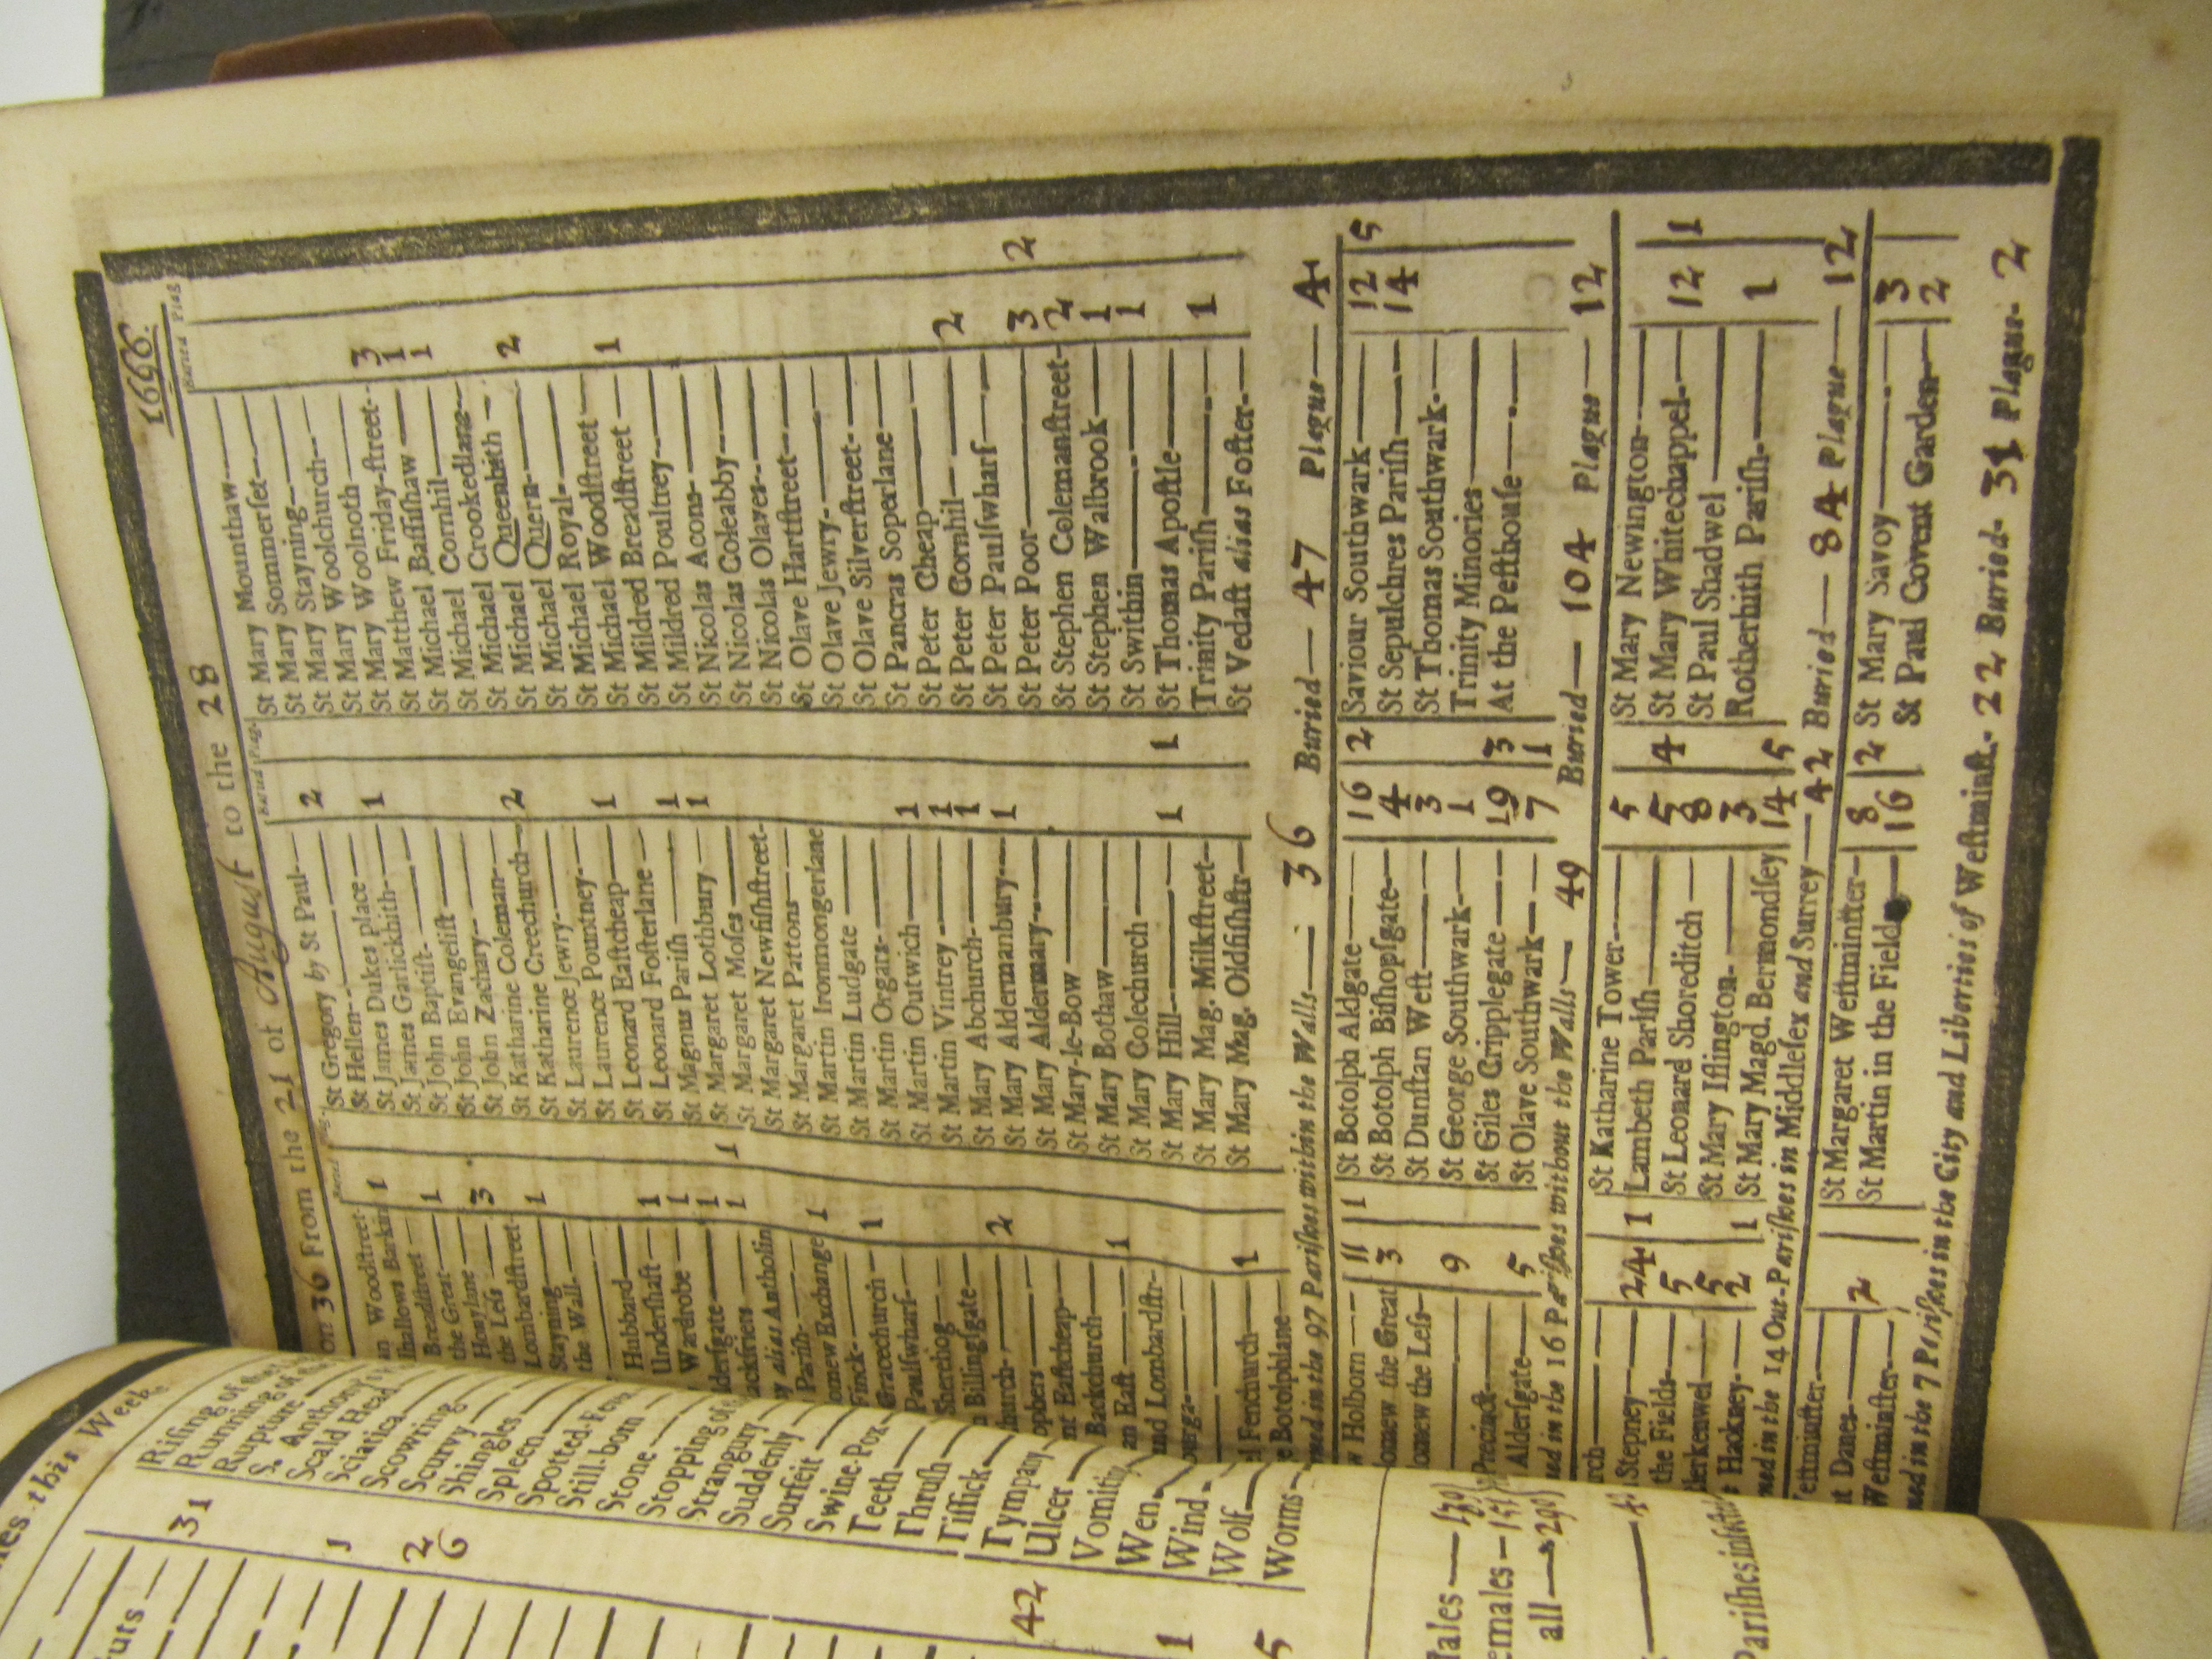 on 36 From the 21 of August to the 28 1666.
Buried Plag. Buried Plag. Buried Plag.
Woodstreet- St Gregory by St Paul- 2 St Mary Mounthaw
lhallows Barkin 1 St Hellen St Mary Sommerset
Breadstreet St James Dukes place 1 St Mary Stayning
the Great 1 St James Garlickhith St Mary Woolchurch
Honylane St John Baptist St Mary Woolnoth 3
the Less 3 St John Evangelist St Matthew Friday-street 1
Lombardstreet St John Zachary St Michael Bassishaw 1
Stayning 1 St Katharine Coleman 2 St Michael Cornhil
the Wall St Katharine Creechurch St Michael Crookedlane
St Laurence Jewry St Michael Queenhith 2
Hubbard St Laurence Pountney 1 St Michael Quern
Undershaft 1 St Leonard Eastcheap St Michael Royal
Wardrobe 1 St Leonard Fosterlane 1 St Michael Woodstreet 1
ldersgate 1 St Magnus Parish 1 St Mildred Breadstreet
lackfriers 1 1 St Margaret Lothbury St Mildred Poultrey
y alias Antholin St Margaret Moses St Nicolas Acons
Parish St Margaret Newfishstreet St Nicolas Coleabby
omew Exchange 1 St Margaret Pattons St Nicolas Olaves
Finck St Martin Ironmongerlane St Olave Hartstreet
Gracechurch 1 St Martin Ludgate St Olave Jewry
Paulswharf St Martin Orgars St Olave Silverstreet
Sherehog St Martin Outwich 1 St Pancras Soperlane
Billingsgate St Martin Vintrey 1 St Peter Cheap 2
hurch 2 St Mary Abchurch 1 St Peter Cornhil
St Mary Aldermanbury 1 St Peter Paulswharf 3 2
nt Eastcheap St Mary Aldermary St Peter Poor 2
Backchurch St Mary-le-Bow St Stephen Colemanstreet 1
an East 1 St Mary Bothaw St Stephen Walbrook 1
and Lombardstr- St Mary Colechurch St Swithin
St Mary Hill 1 1 St Thomas Apostle 1
St Mary Mag. Milkstreet Trinity Parish
el Fenchurch 1 St Mary Mag. Oldfishstr St Vedast alias Foster
e Botolphlane
ned in the 97 Parishes within the Walls— 36 Buried— 47 Plague— 4
w Holborn 11 1 St Botolph Aldgate 16 2 Saviour Southwark 12 5
omew the Great 3 St Botolph Bishopsgate 4 St Sepulchres Parish 14
omew the Less St Dunstan West 3 St Thomas Southwark
9 St George Southwark 1 Trinity Minories
Precinct St Giles Cripplegate 19 3 At the Pesthouse
Aldersgate 5 St Olave Southwark 7 1
ned in the 16 Parishes without the Walls— 49 Buried— 104 Plague— 12
rch St Katharine Tower 5 St Mary Newington
Stepney 24 1 Lambeth Parish 5 4 St Mary Whitechappel 12 1
the Fields 5 St Leonard Shoreditch 8 St Paul Shadwel
lerkenwel 5 St Mary Islington 3 Rotherhith Parish 1
Hackney 2 1 St Mary Magd. Bermondsey 14 5
ned in the 14 Out-Parishes in Middlesex and Surrey— 42 Buried— 84 Plague— 12
estminster St Margaret Westminster 8 2 St Mary Savoy 3
nt Danes 2 St Martin in the Fields 16 St Paul Covent Garden 2
Westminster
ned in the 7 Parishes in the City and Liberties of Westminst. 22 Buried 31 Plague 2
this Week
Rising of the
Running of the
31 Rupture
S. Anthony's
Scald Head
1 Sciatica
Scowring
2 Scurvy
6 Shingles
Spleen
Spotted Fever
Still-born
Stone
Stopping of
Strangury
Suddenly
Surfeit
Swine-Pox
Teeth
Thrush
Tissick
42 Tympany
Ulcer
Vomiting
1 Wen
Wind
Wolf
5 Worms
all
Parishes infected